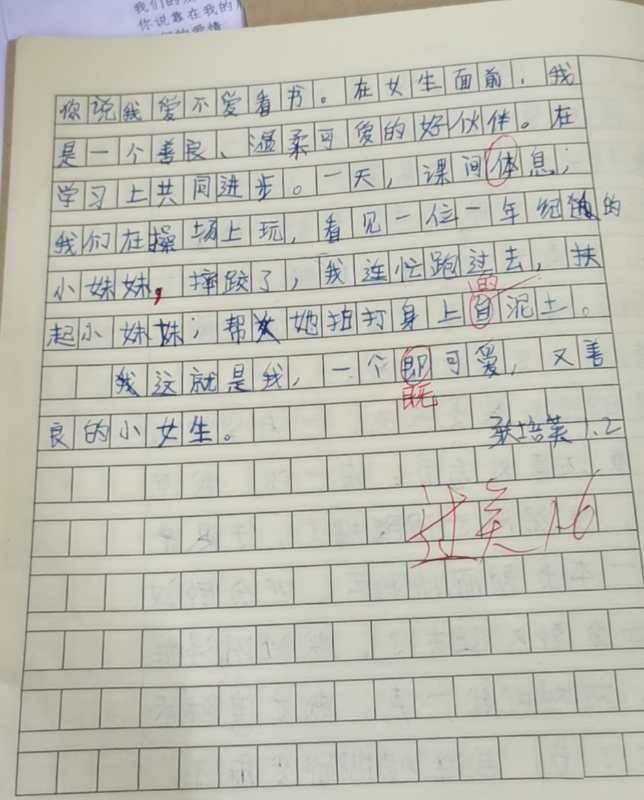 你说靠在我的
你说我爱不爱看书。在女生面前，我
是一个善良、温柔可爱的好伙伴。在
学习上共同进步。一天，课间体息，
我们在操场上玩，看见一位一年级的
小妹妹，摔跤了，我连忙跑过去，扶
的
起小妹妹；帮她拍打身上自泥土。
我这就是我，一个即可爱，又善
既
良的小女生。
1.2
过关 1.6